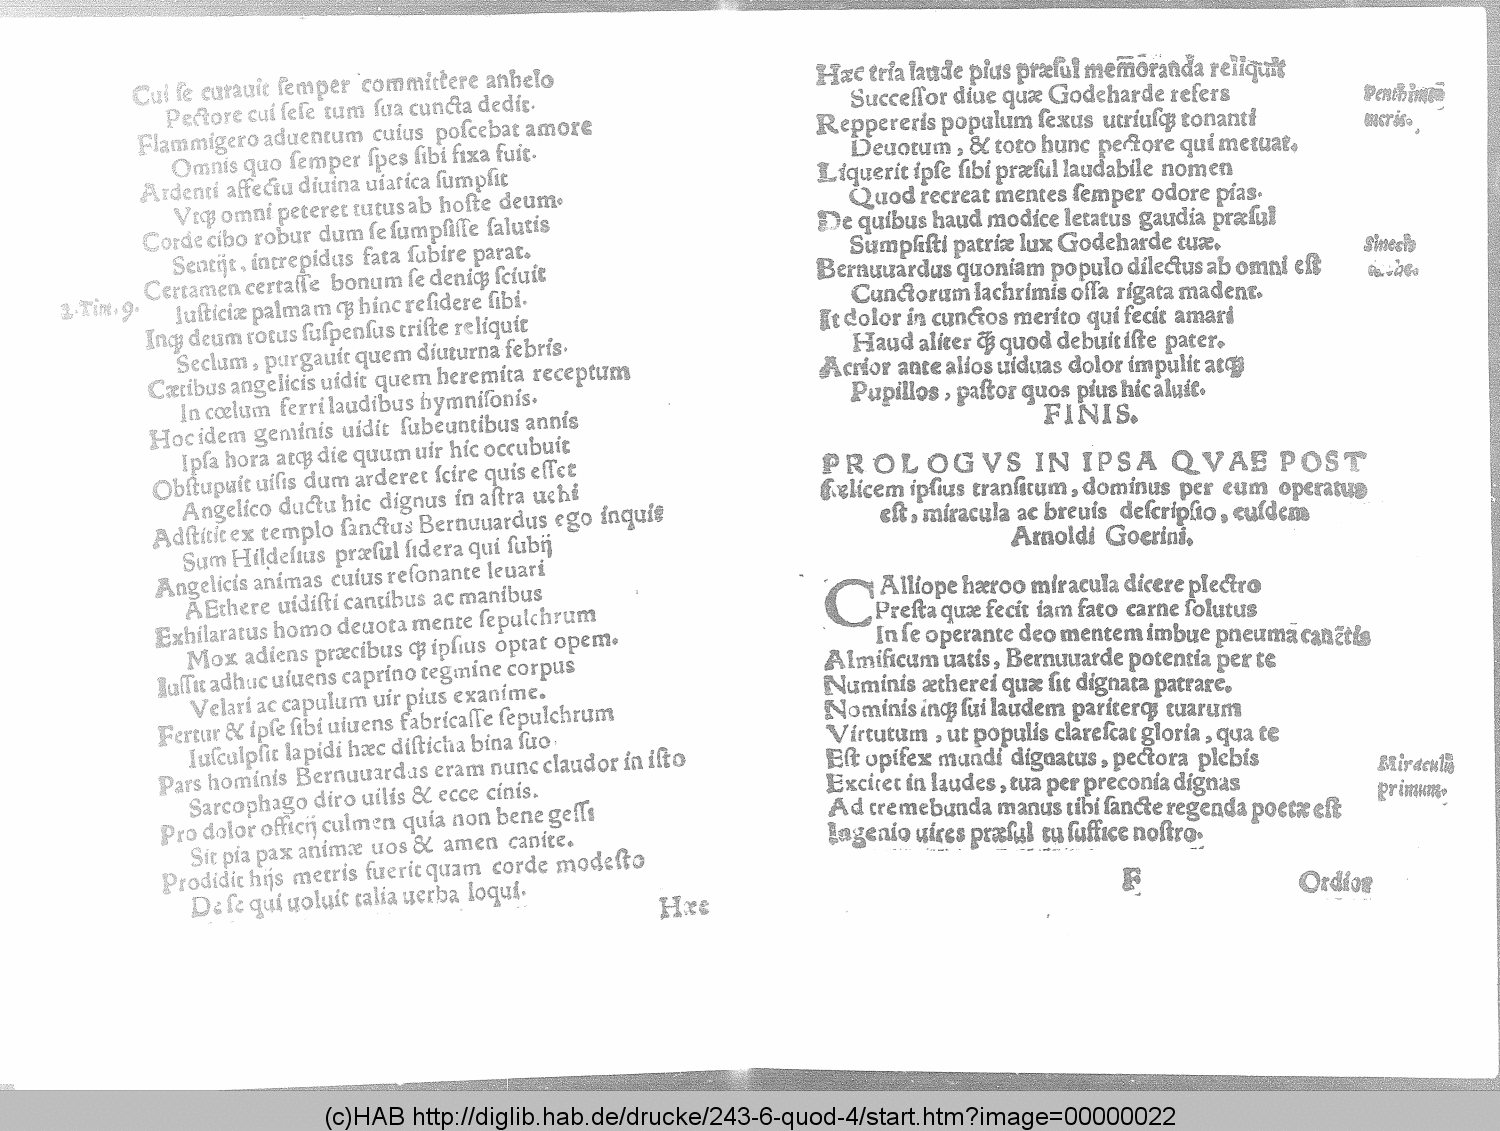 Cui ſe curauit ſemper committere anhelo
Pectore cui ſeſe tum ſua cuncta dedit.
Flammigero aduentum cuius poſcebat amore
Omnis quo ſemper ſpes ſibi fixa fuit.
Ardenti affectu diuina uiatica ſumpſit
Vtqꝫ omni peteret tutus ab hoſte deum.
Corde cibo robur dum ſe ſumpſiſſe ſalutis
Sentijt, intrepidus fata ſubire parat.
Certamen certaſſe bonum ſe deniqꝫ ſciuit
2. Tim. 9. Iuſticiæ palmam qꝫ hinc reſidere ſibi.
Inqꝫ deum totus ſuſpenſus triſte reliquit
Seclum, purgauit quem diuturna febris.
Cætibus angelicis uidit quem heremita receptum
In cœlum ferri laudibus hymniſonis.
Hoc idem geminis uidit ſubeuntibus annis
Ipſa hora atqꝫ die quum uir hic occubuit
Obſtupuit uiſis dum arderet ſcire quis eſſet
Angelico ductu hic dignus in aſtra uehi
Adſtitit ex templo ſanctus Bernuuardus ego inquit
Sum Hildeſius præſul ſidera qui ſubij
Angelicis animas cuius reſonante leuari
AEthere uidiſti cantibus ac manibus
Exhilaratus homo deuota mente ſepulchrum
Mox adiens præcibus qꝫ ipſius optat opem.
Iuſſit adhuc uiuens caprino tegmine corpus
Velari ac capulum uir pius exanime.
Fertur & ipſe ſibi uiuens fabricaſſe ſepulchrum
Iuſculpſit lapidi hæc diſticha bina ſuo.
Pars hominis Bernuuardus eram nunc claudor in iſto
Sarcophago diro uilis & ecce cinis.
Pro dolor officij culmen quia non bene geſſi
Sit pia pax animæ uos & amen canite.
Prodidit hijs metris fuerit quam corde modeſto
De ſe qui uoluit talia uerba loqui.
Hæc
Hæc tria laude pius præſul memoranda reliquit
Succeſſor diue quæ Godeharde refers
Reppereris populum ſexus utriuſqꝫ tonanti
Deuotum, & toto hunc pectore qui metuat.
Liquerit ipſe ſibi præſul laudabile nomen
Quod recreat mentes ſemper odore pias.
De quibus haud modice letatus gaudia præſul
Sumpſiſti patriæ lux Godeharde tuæ.
Bernuuardus quoniam populo dilectus ab omni eſt
Cunctorum lachrimis oſſa rigata madent.
Et dolor in cunctos merito qui fecit amari
Haud aliter qꝫ quod debuit iſte pater.
Acrior ante alios uiduas dolor impulit atqꝫ
Pupillos, paſtor quos pius hic aluit.
FINIS.
PROLOGVS IN IPSA QVAE POST
fœlicem ipſius tranſitum, dominus per eum operatus
eſt, miracula ac breuis deſcriptio, eiuſdem
Arnoldi Goerini.
CAlliope hæroo miracula dicere plectro
Preſta quæ fecit iam fato carne ſolutus
In ſe operante deo mentem imbue pneuma
Almificum uatis, Bernuuarde potentia per te
Numinis ætherei quæ ſit dignata patrare.
Nominis inqꝫ ſui laudem pariterqꝫ tuarum
Virtutum, ut populis clareſcat gloria, qua te
Eſt opifex mundi dignatus, pectora plebis
Miraculū
Excitet in laudes, tua per preconia dignas
primum.
Ad tremebunda manus tibi ſancte regenda poetæ eſt
Ingenio uires præſul tu ſuffice noſtro.
F Ordior
(c)HAB http://diglib.hab.de/drucke/243-6-quod-4/start.htm?image=00000022